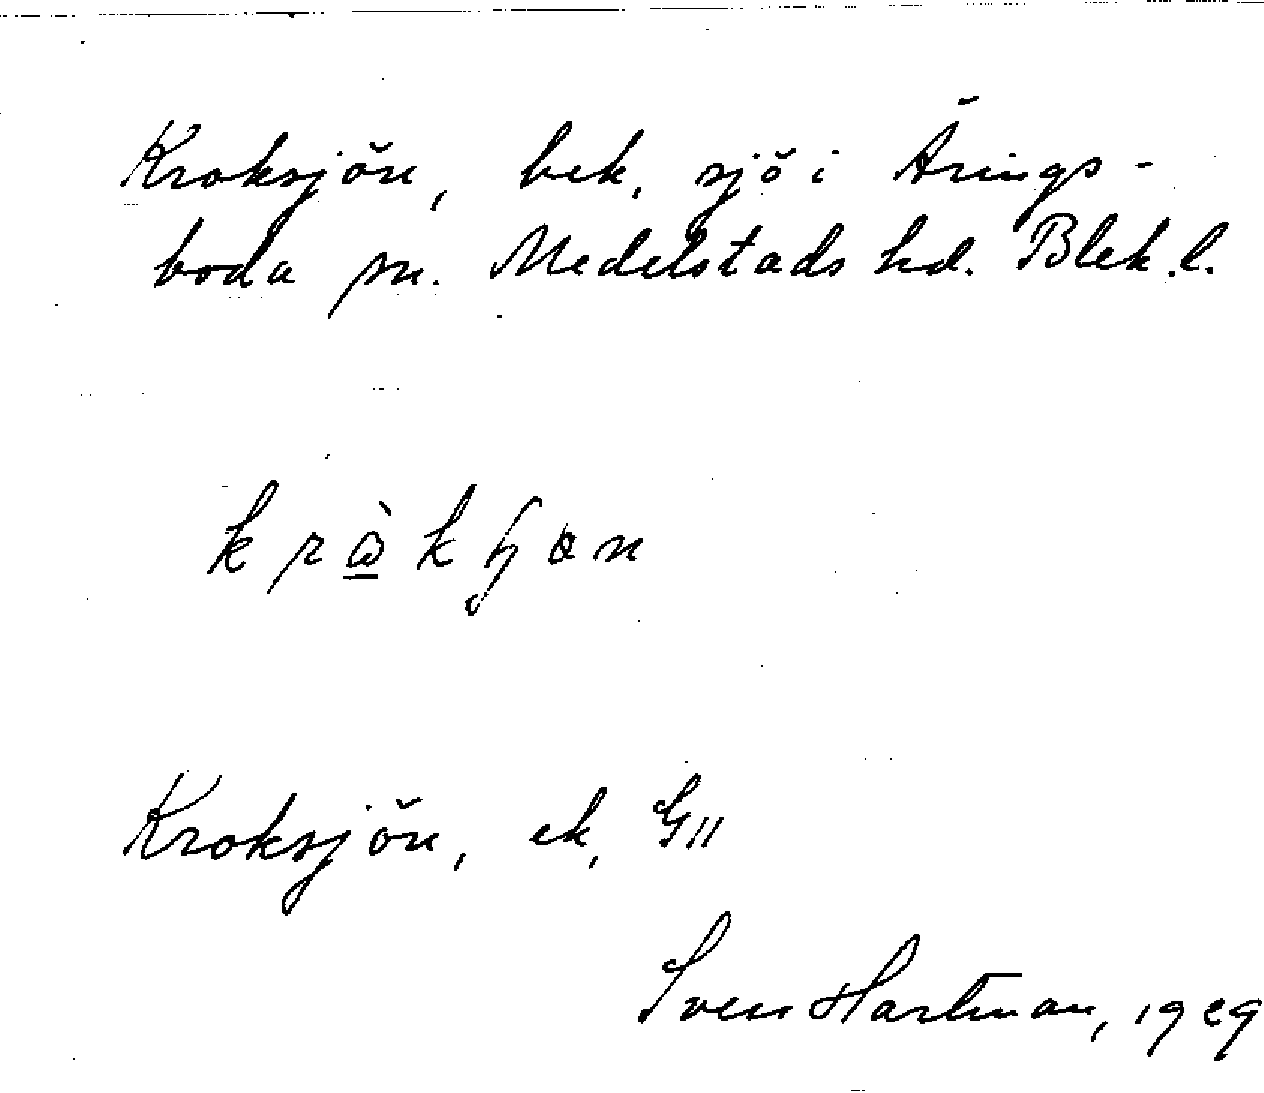 Kroksjön, bek, sjö i Årings-
boda sn. Medelstads hd. Blek.l.
Kroksjön, ek, G11
Sven Hartman, 1929